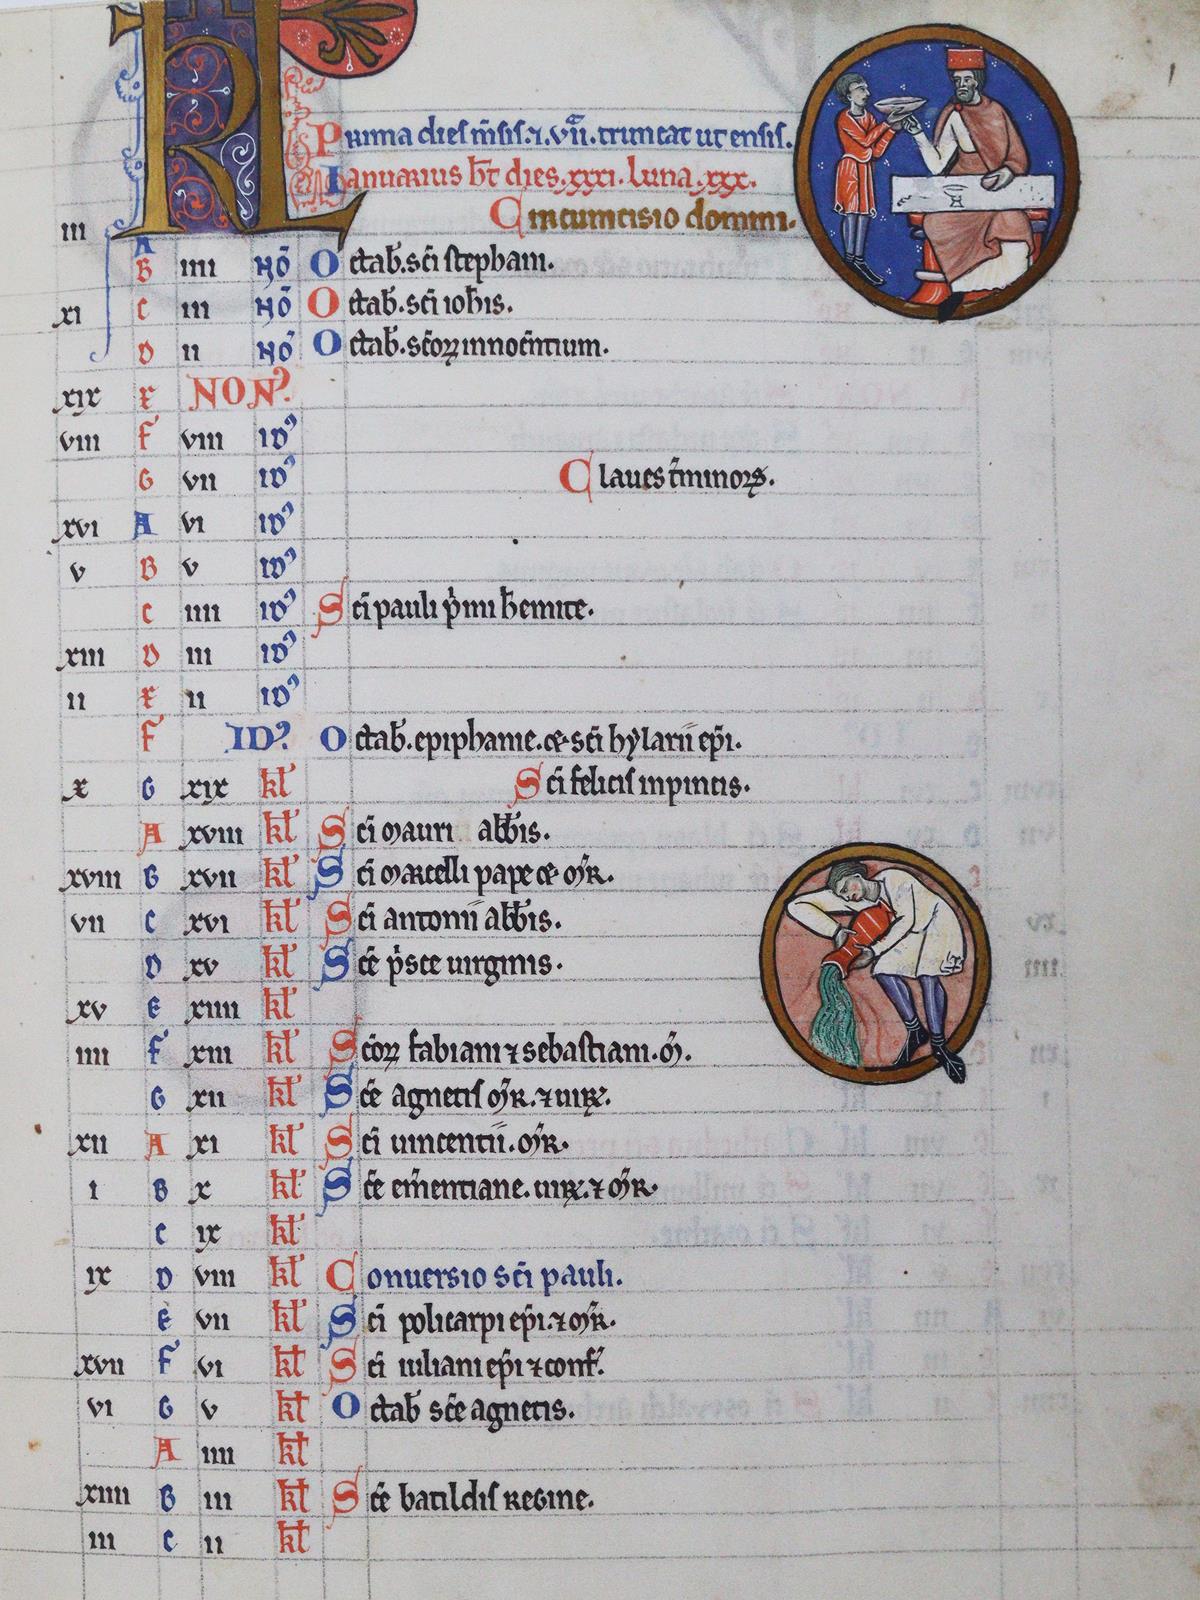 KL
Prima dies m̄sis.⁊.vii͞a.truncat ut ensis.
Ianuarius h̄t dies.xxxi.luna.xxx.
iii A Circumcisio domini.
B iiii NO̅ Octab̄.sc̄i stephani.
xi C iii NO̅ Octab̄.sc̄i ioh̄is.
D ii NO̅ Octab̄.sc̄oꝝ innoc̄ntium.
xix E NONꝰ
viii F viii IDꝰ
G vii IDꝰ Claues t̄minoꝝ.
xvi A vi IDꝰ
v B v IDꝰ
C iiii IDꝰ Sc̄i pauli p̄mi h̄emite.
xiii D iii IDꝰ
ii E ii IDꝰ
F IDꝰ Octab̄.epiphanie.⁊ sc̄i hylarii ep̄i.
x G xix kl' Sc̄i felicis inpincis.
A xviii kl' Sc̄i mauri abb̄is.
xviii B xvii kl' Sc̄i marcelli pape ⁊ m̄R.
vii C xvi kl' Sc̄i antonii abb̄is.
D xv kl' Sc̄e p̄sce uirginis.
xv E xiiii kl'
iiii F xiii kl' Sc̄oꝝ fabiani ⁊ sebastiani.m̄.
G xii kl' Sc̄e agnetis m̄R.⁊ uirḡ.
xii A xi kl' Sc̄i uincentii.m̄R.
i B x kl' Sc̄e em̄entiane.uirḡ.⁊ m̄R.
C ix kl'
ix D viii kl' Conuersio sc̄i pauli.
E vii kl' Sc̄i policarpi ep̄i.⁊ m̄R.
xvii F vi kl' Sc̄i iuliani ep̄i ⁊ conf̄.
vi G v kl' Octab̄ sc̄e agnetis.
A iiii kl'
xiiii B iii kl' Sc̄e batildis regine.
iii C ii kl'